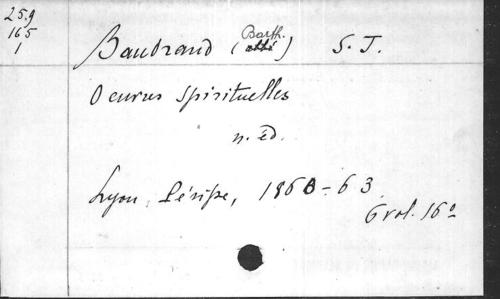 259
165
1
Baudrand (Barth.) S. J.
Oeuvres Spirituelles
n. éd.
Lyon, Périsse, 1860-63
6 vol. 16º